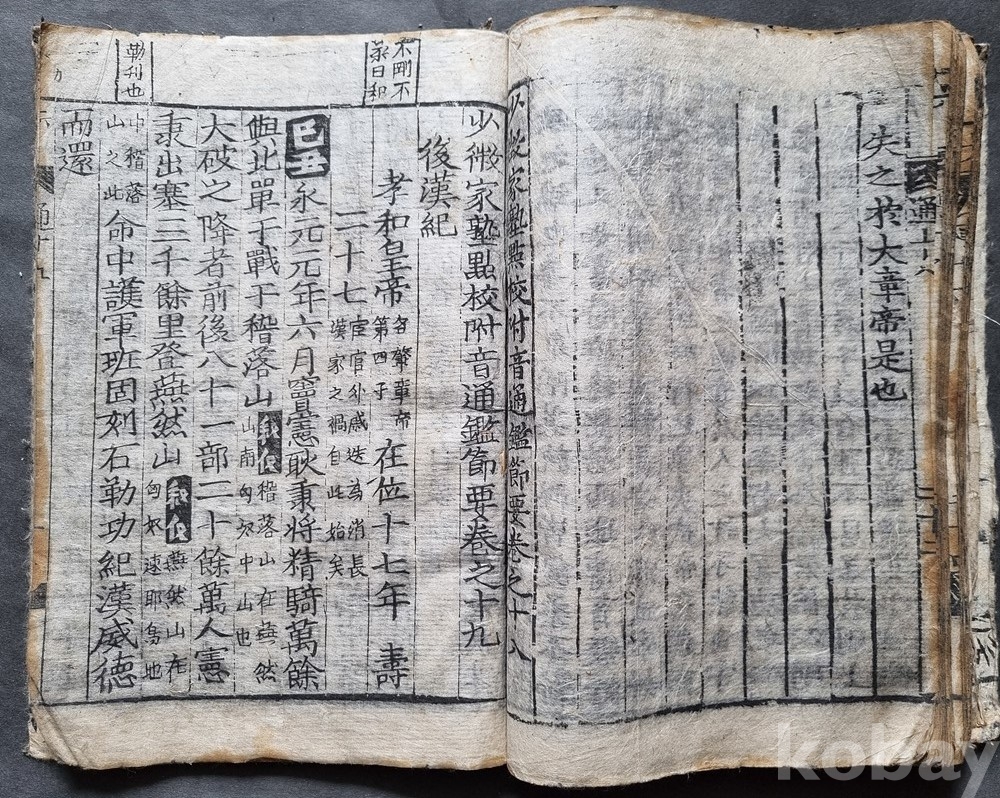 失之於大章帝是也
少微家塾點校附音通鑑節要卷之十八
不剛不
柔曰和
勒刊也
少微家塾點校附音通鑑節要卷之十九
後漢紀
孝和皇帝名肇章帝第四子在位十七年 壽
二十七宦官外戚迭為消長漢家之禍自此始矣
己丑永元元年六月竇憲耿秉將精騎萬餘
與北單于戰于稽落山稽落山在燕然山南匈奴中山也
大破之降者前後八十一部二十餘萬人憲
秉出塞三千餘里登燕然山燕然山在匈奴速耶烏地
中稽落山之北命中護軍班固刻石勒功紀漢威德
而還
kobay